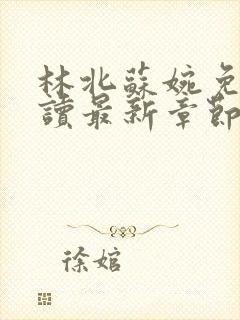 林北蘇婉免
讀最新章節
徐婠